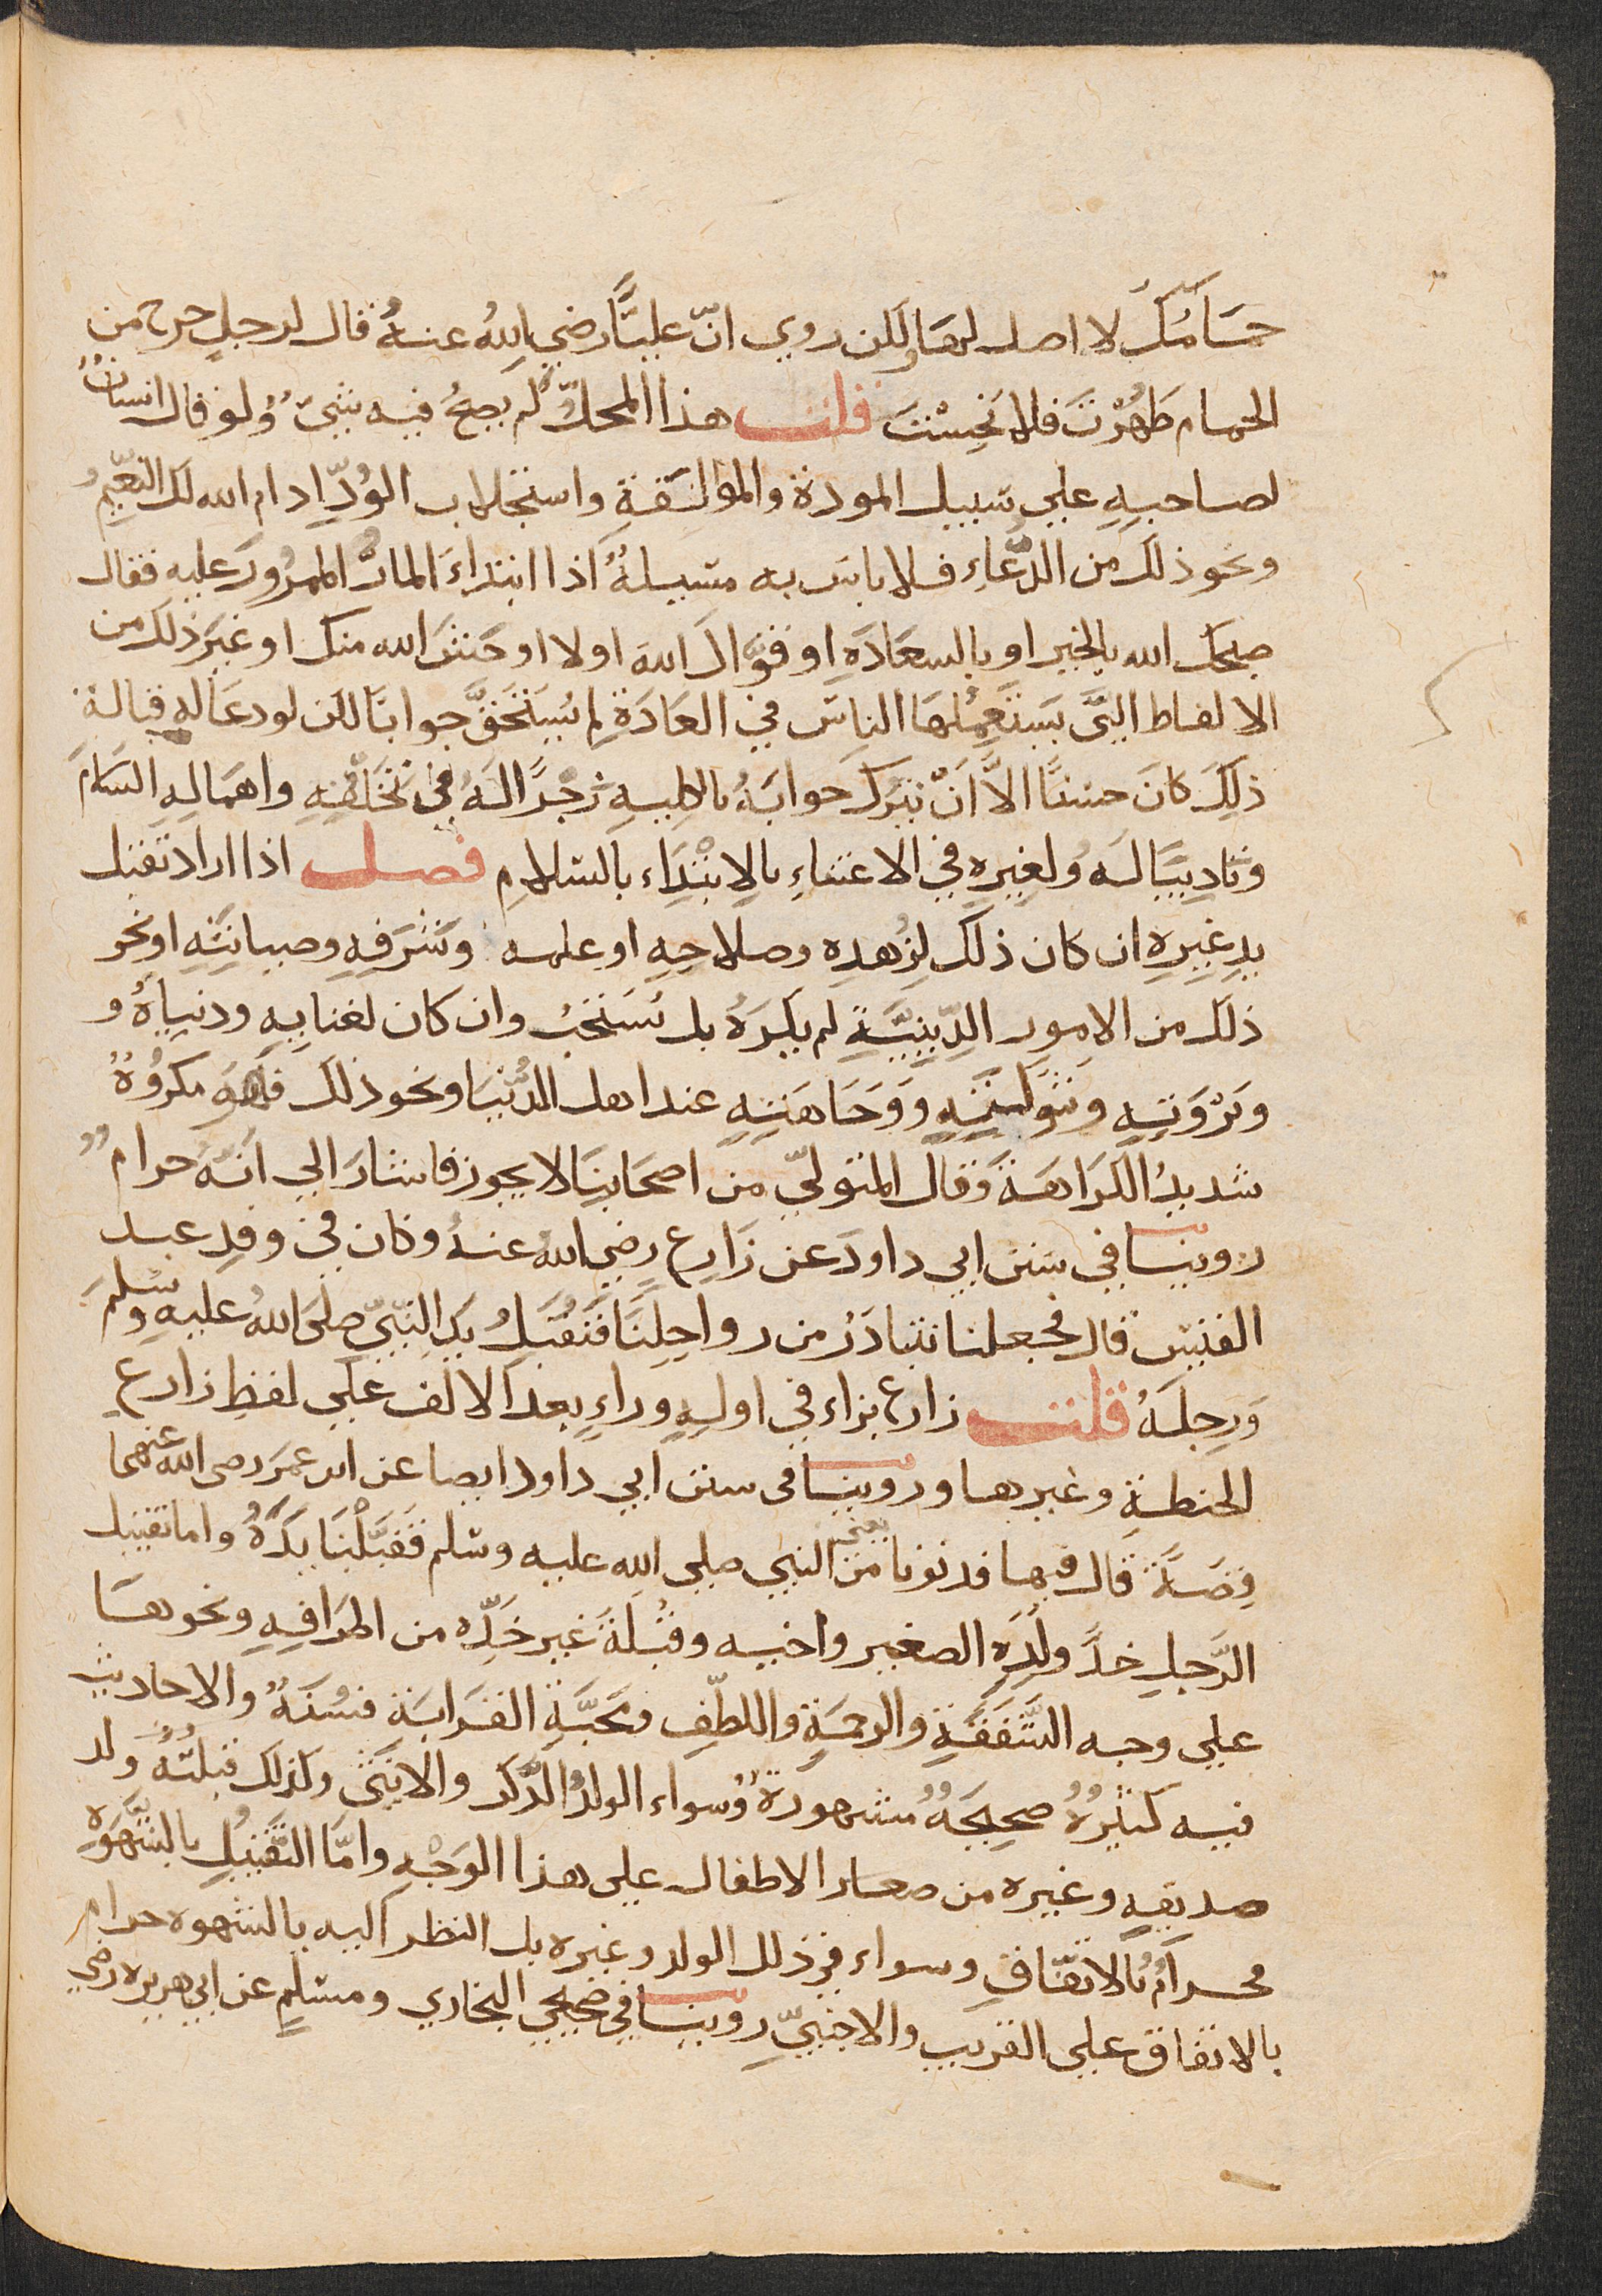 حمامك لا اصل لها ولكن روي انّ عليًّا رضي الله عنه قال لرجلٍ خرج من
الحمام طَهُرْتَ فلا نَجِسْتَ قلت هذا المحلّ لم يصحّ فيه شيئ ولو قال انسان
لصاحبهِ علي سبيل المودة والموالفةِ واستجلاب الوُدِّ ادام الله لك النعيم
ونحو ذلك من الدّعاء فلا باس به مسيلةٌ اذا ابتداءَ المارّ الممرُورَ عليهِ فقال
صبحك الله بالخير او بالسعَادَةِ او قوَّاك الله اولا اوحَشَ الله منك او غيرَ ذلك من
الالفاط التي يَستَعمِلُهَا الناس في العَادَةِ لم يَستَحَقّ جوابًا لكن لو دعَا له قبالة
ذلِكَ كانَ حسنًا الاَّ اَنّ يترك جوابَهُ بالكليهِ زجْرًا لَهُ في تَخَلّفِهِ واهمالهِ السَلامَ
وتاديبًا لَه ولغيرِهِ في الاعتناءِ بالابْتِدَاء بالسلامِ فصل اذا اراد تقبيل
يدِ غيرِهِ ان كان ذلك لِزُهدِه وصلاحِهِ او علمه وشَرَفِهِ وصيانتِهِ او نحو
ذلك من الامور الدِّينيَّةِ لم يكرَهُ بل يُسَتَحَبُ وان كان لغنايهِ ودنياهُ و
وثرْوَتِهِ وشَوكتِهِ وَوَجَاهَتِهِ عند اهل الدُّنيَا ونحو ذلك فهوَ مكروُهٌ
شديدُ الكرَاهَة وقال المتوليّ من اصحَابِنَا لا يجوز فاشارَ الي انَّهَ حرام
روينا في سنن ابي داودَ عن زَارِع رضي الله عنهُ وكان في وفدِ عبد
القيس قال فجعلنا نتبادَرُ من رواحِلِنَا فَنُقَبّلُ يَدِ النّبِيّ صليَ اللهُ عليهِ وسلمَ
وَرِجلَهُ قلت زارع بزاء في اولهِ وراءٍ بعد الالف علي لفظِ زارعِ
الحنطةِ وغيرها وروينا في سنن ابي داود ايضا عن ابن عمَر رضي الله عنهما
قِصَةً قال فيها فدنونا يعني من النبي صلي الله عليه وسلم فَقَبَّلْنَا يَدَهُ واما تقبيل
الرَّجلِ خدَّ ولَدِهِ الصغير واخيه وقُبْلَةَ غير خَدِّه من اطرَافِهِ ونحوهَا
علي وجه الشَّفَقَةِ والرحمَةِ واللطّفِ ومَحَبَّةِ القرَابَة فسُنَةٌ والاحاديث
فيه كثيرةٌ صحِيحَةٌ مشهورَةٌ وسواء الولدُ الذَّكر والانثى وكذلك قبلَتُهُ ولد
صديقهِ وغيره من صغار الاطفال علي هذا الوَجْهِ وامّا التَقبِيلُ بالشَهوَةِ
فحرامٌ بالاتفاق وسواء في ذلك الولد وغيره بل النظر اليه بالشهوه حرام
بالاتفاق علي القريب والاجنبيِّ روينا في صحيحي البخاري ومسلمٍ عن ابي هريره رضي